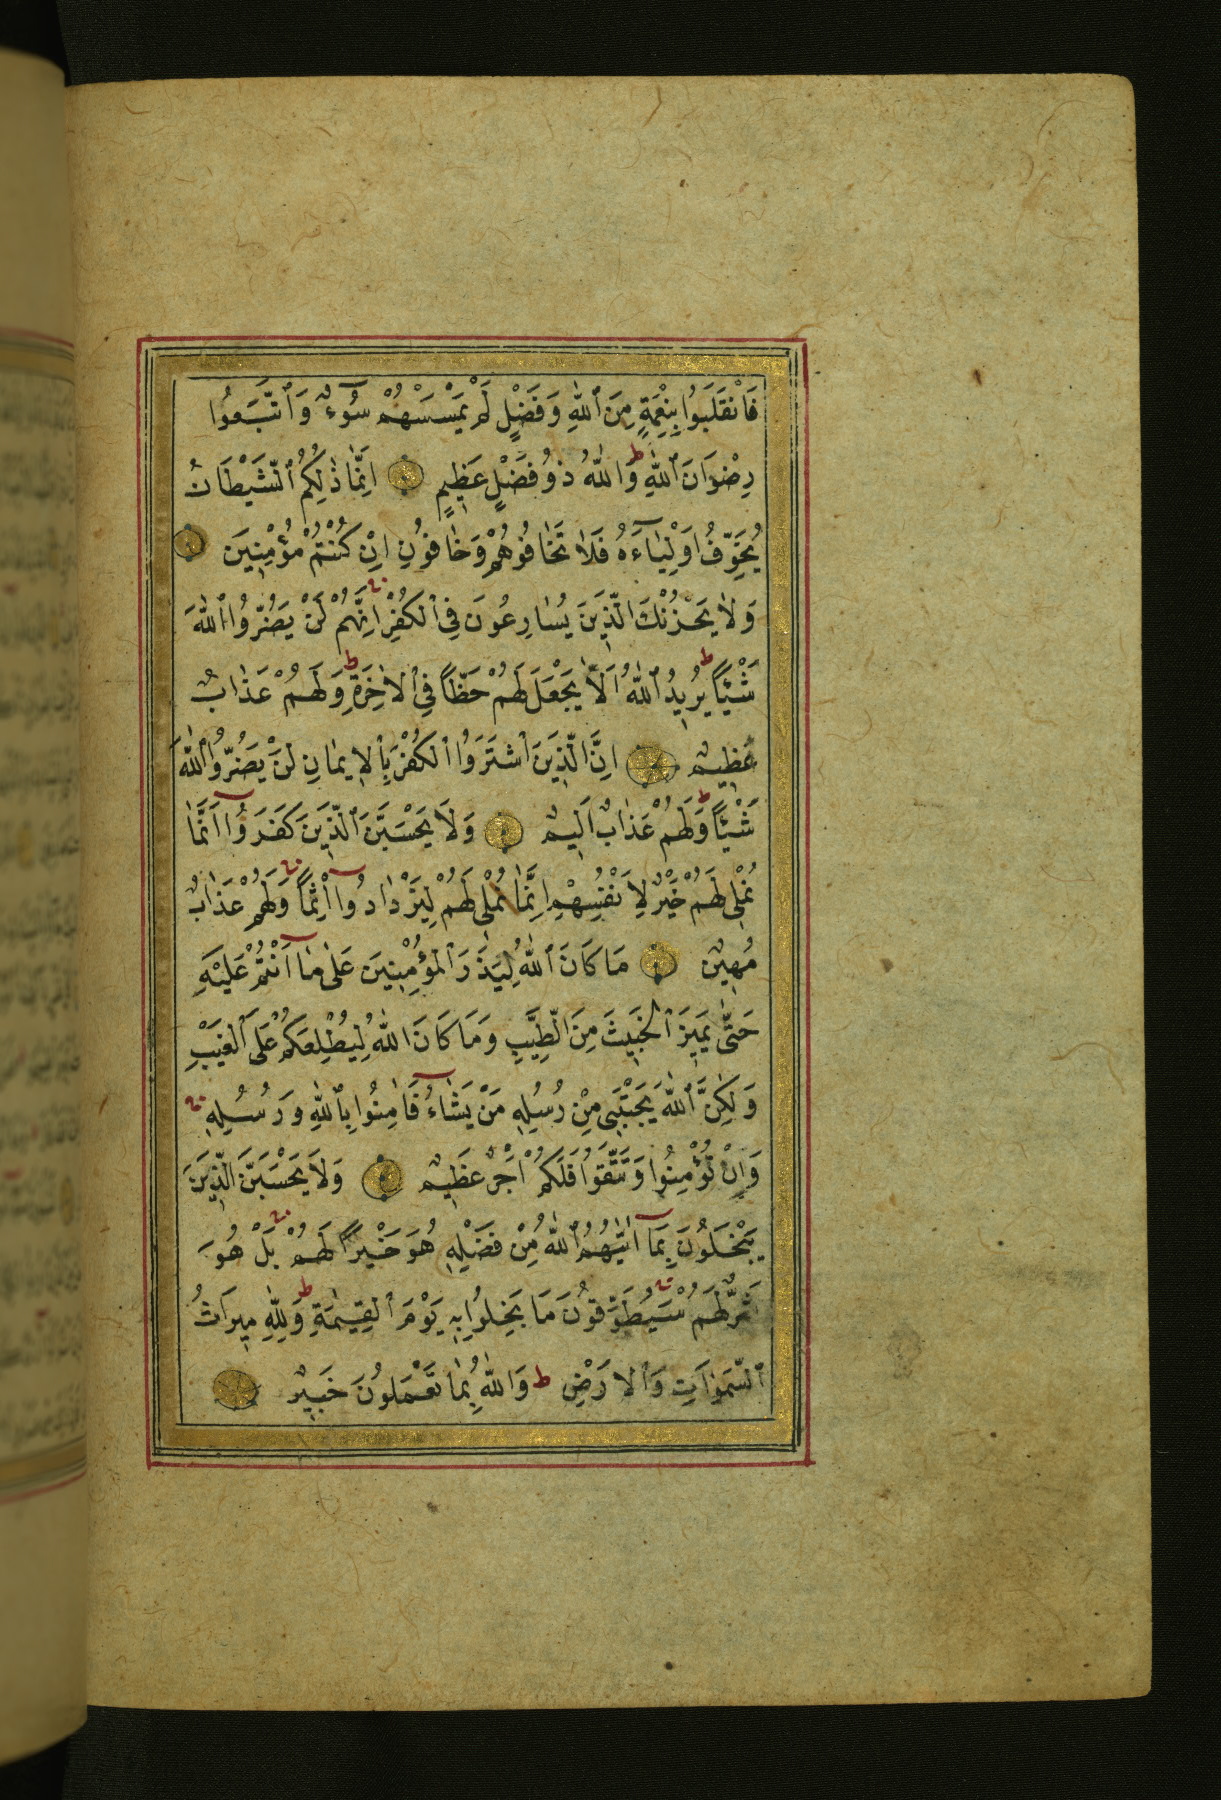 فَانْقَلَبُوا بِنِعْمَةٍ مِنَ ٱللّٰهِ وَفَضْلٍ لَمْ يَمْسَسْهُمْ سُوٓءٌ وَٱتَّبَعُوا
رِضْوَانَ ٱللّٰهِ ط وَاللّٰهُ ذُو فَضْلٍ عَظِيمٍ اِنَّمَا ذٰلِكُمُ ٱلشَّيْطَانُ
يُخَوِّفُ اَوْلِيَآءَهُ فَلَا تَخَافُوهُمْ وَخَافُونِ اِنْ كُنْتُمْ مُؤْمِنِينَ
وَلَا يَحْزُنْكَ الَّذِينَ يُسَارِعُونَ فِى ٱلْكُفْرِ اِنَّهُمْ لَنْ يَضُرُّوا ٱللّٰهَ
شَيْئًا ط يُرِيدُ ٱللّٰهُ اَلَّا يَجْعَلَ لَهُمْ حَظًّا فِى ٱلْاٰخِرَةِ ط وَلَهُمْ عَذَابٌ
عَظِيمٌ اِنَّ الَّذِينَ ٱشْتَرَوُا ٱلْكُفْرَ بِٱلْاِيمَانِ لَنْ يَضُرُّوا ٱللّٰهَ
شَيْئًا ط وَلَهُمْ عَذَابٌ اَلِيمٌ وَلَا يَحْسَبَنَّ ٱلَّذِينَ كَفَرُوٓا اَنَّمَا
نُمْلِى لَهُمْ خَيْرٌ لِاَنْفُسِهِمْ اِنَّمَا نُمْلِى لَهُمْ لِيَزْدَادُوٓا اِثْمًا وَلَهُمْ عَذَابٌ
مُهِينٌ مَا كَانَ ٱللّٰهُ لِيَذَرَ ٱلْمُؤْمِنِينَ عَلٰى مَآ اَنْتُمْ عَلَيْهِ
حَتّٰى يَمِيزَ ٱلْخَبِيثَ مِنَ الطَّيِّبِ وَمَا كَانَ اللّٰهُ لِيُطْلِعَكُمْ عَلَى ٱلْغَيْبِ
وَلٰكِنَّ ٱللّٰهَ يَجْتَبِى مِنْ رُسُلِهِ مَنْ يَشَآءُ فَاٰمِنُوا بِٱللّٰهِ وَرُسُلِهِ
وَاِنْ تُؤْمِنُوا وَتَتَّقُوا فَلَكُمْ اَجْرٌ عَظِيمٌ وَلَا يَحْسَبَنَّ الَّذِينَ
يَبْخَلُونَ بِمَآ اٰتٰيهُمُ ٱللّٰهُ مِنْ فَضْلِهِ هُوَ خَيْرًا لَهُمْ بَلْ هُوَ
شَرٌّ لَهُمْ سَيُطَوَّقُونَ مَا بَخِلُوا بِهِ يَوْمَ ٱلْقِيٰمَةِ ط وَلِلّٰهِ مِيرَاثُ
ٱلسَّمٰوَاتِ وَٱلْاَرْضِ ط وَاللّٰهُ بِمَا تَعْمَلُونَ خَبِيرٌ